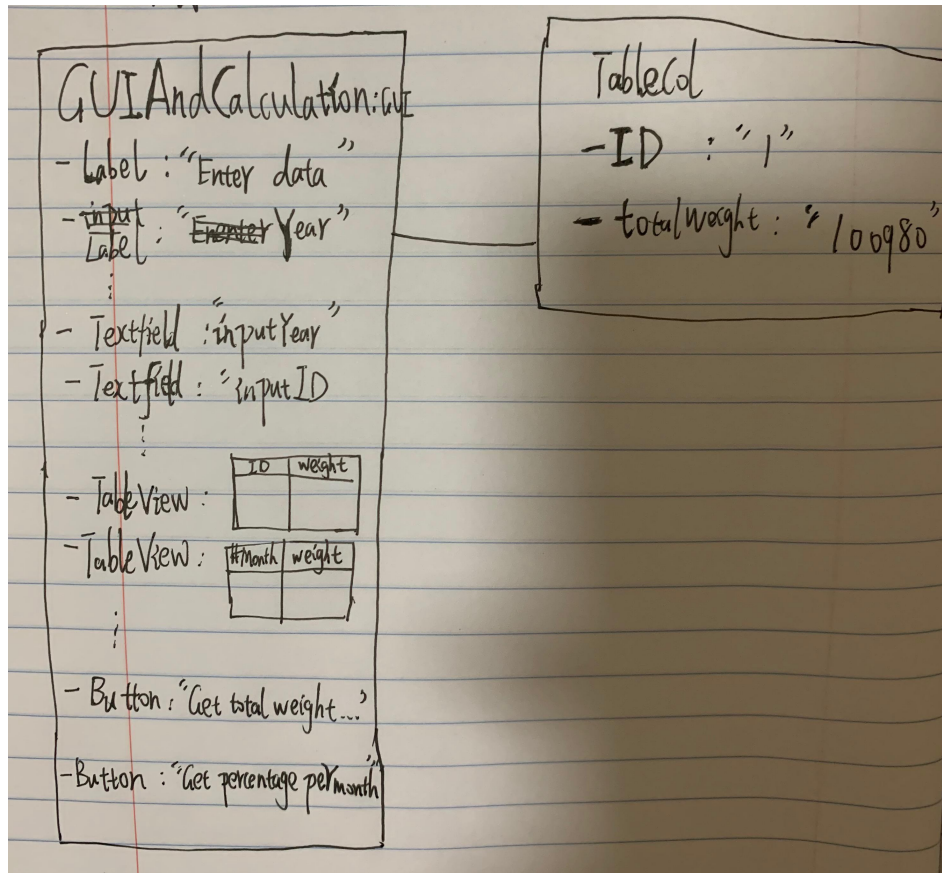 GUIAndCalculation:GUI
- Label : "Enter data"
- input
Label : "Enenter Year"
- Textfield : "inputYear"
- Textfield : "inputID
- TableView :
ID weight
- TableView :
#Month weight
- Button : "Get total weight..."
- Button : "Get percentage per month"
TableCol
- ID : "1"
- totalweight : "100980"